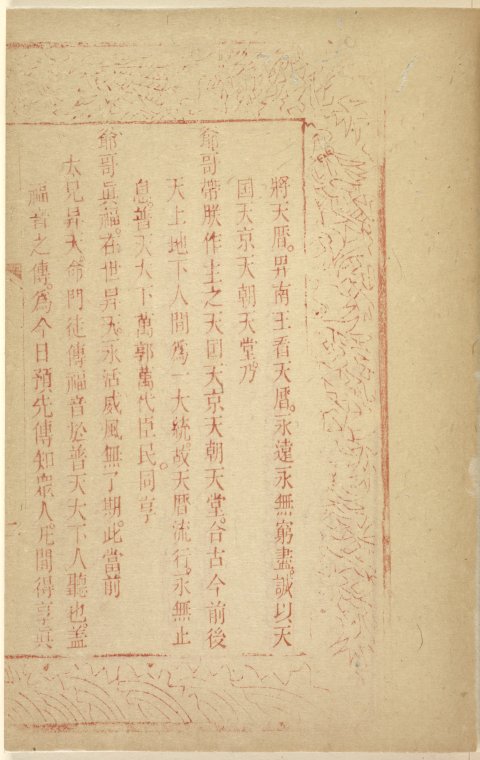 將天曆。畀南王看天曆。永遠永無窮盡。誠以天
囯天京天朝天堂。乃
爺哥帶朕作主之天囯天京天朝天堂。合古今前後
天上地下人間爲一大統。故天曆流行。永無止
息。普天大下萬郭萬代臣民。同享
爺哥眞福。在世昇天。永活威風無了期。此當前
太兄昇天。命門徒傳福音於普天大下人聽也。蓋
福音之傳。爲今日預先傳知衆人。凡間得享眞